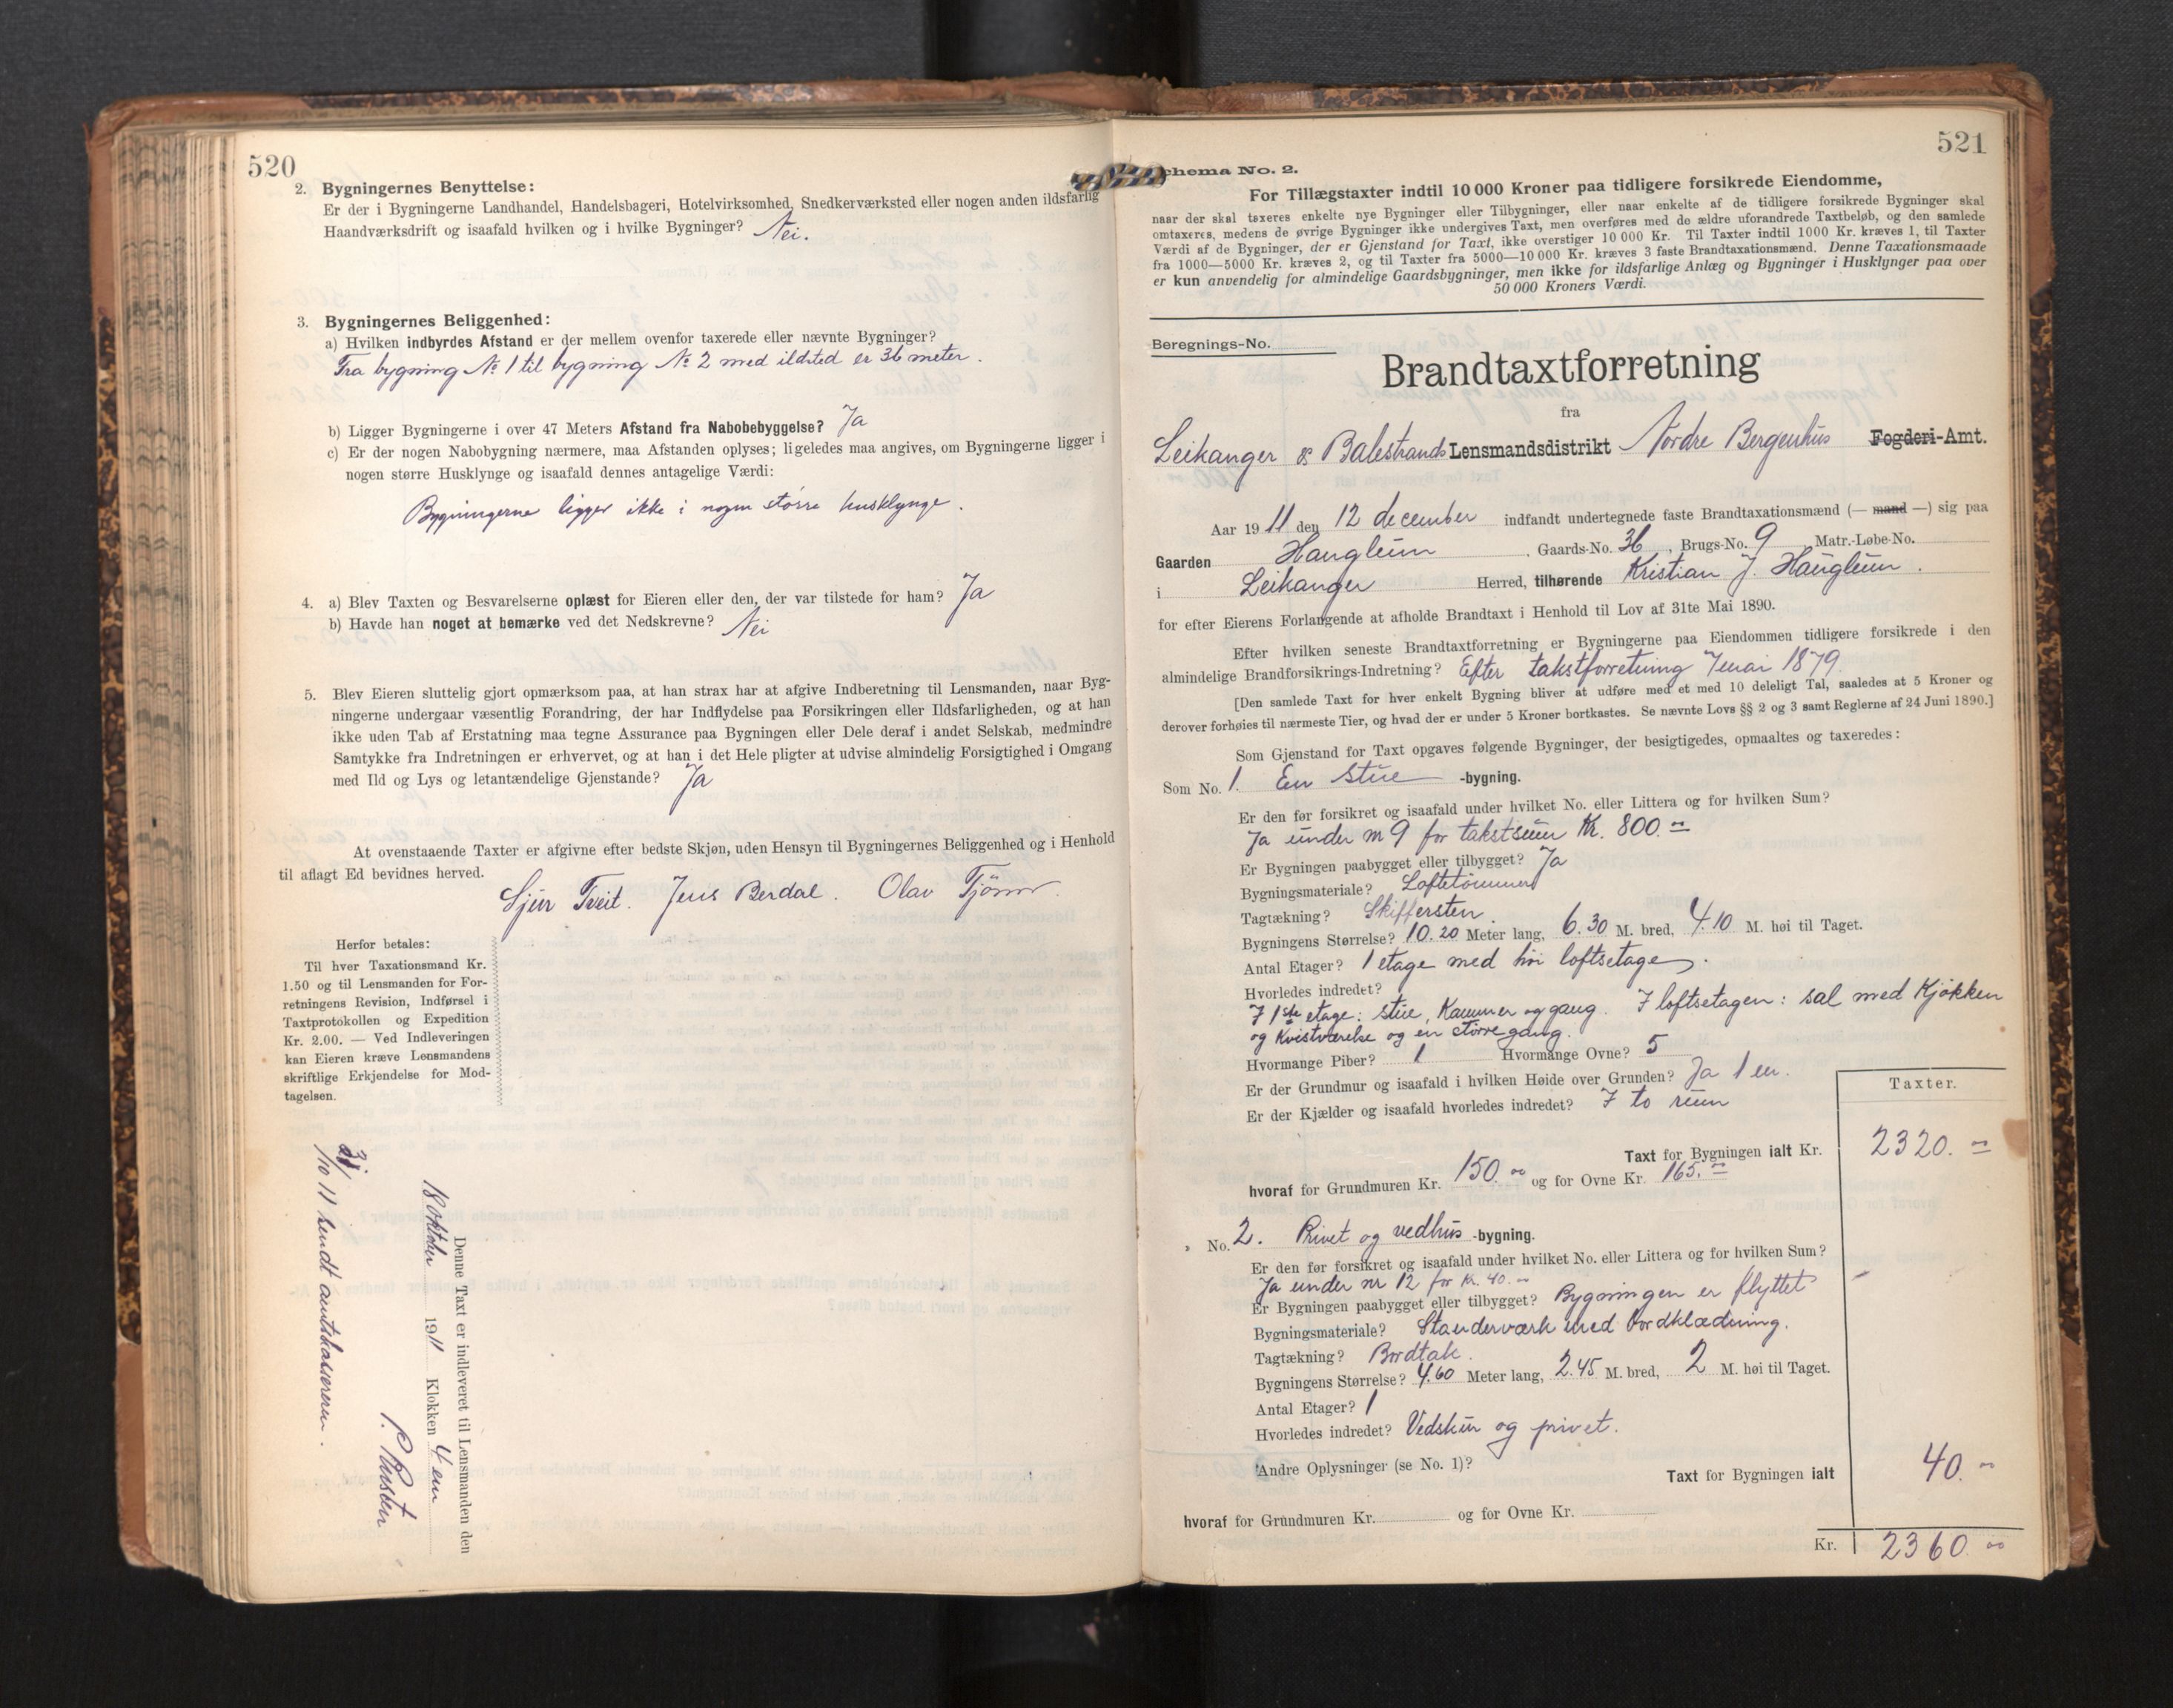 520
2. Bygningernes Benyttelse:
Er der i Bygningerne Landhandel, Handelsbageri, Hotelvirksomhed, Snedkerværksted eller nogen anden ildsfarlig
Haandværksdrift og isaafald hvilken og i hvilke Bygninger? Nei.
3. Bygningernes Beliggenhed:
a) Hvilken indbyrdes Afstand er der mellem ovenfor taxerede eller nævnte Bygninger?
Fra bygning № 1 til bygning № 2 med ildsted er 36 meter.
b) Ligger Bygningerne i over 47 Meters Afstand fra Nabobebyggelse? Ja
c) Er der nogen Nabobygning nærmere, maa Afstanden oplyses; ligeledes maa angives, om Bygningerne ligger i
nogen større Husklynge og isaafald dennes antagelige Værdi:
Bygningerne ligger ikke i nogen större husklynge.
4. a) Blev Taxten og Besvarelserne oplæst for Eieren eller den, der var tilstede for ham? Ja
b) Havde han noget at bemærke ved det Nedskrevne? Nei
5. Blev Eieren sluttelig gjort opmærksom paa, at han strax har at afgive Indberetning til Lensmanden, naar Byg-
ningerne undergaar væsentlig Forandring, der har Indflydelse paa Forsikringen eller Ildsfarligheden, og at han
ikke uden Tab af Erstatning maa tegne Assurance paa Bygningen eller Dele deraf i andet Selskab, medmindre
Samtykke fra Indretningen er erhvervet, og at han i det Hele pligter at udvise almindelig Forsigtighed i Omgang
med Ild og Lys og letantændelige Gjenstande? Ja
At ovenstaaende Taxter er afgivne efter bedste Skjøn, uden Hensyn til Bygningernes Beliggenhed og i Henhold
til aflagt Ed bevidnes herved.
Sjur Tveit. Jens Berdal. Olav
Herfor betales:
Til hver Taxationsmand Kr.
1.50 og til Lensmanden for For-
retningens Revision, Indførsel i
Taxtprotokollen og Expedition
Kr. 2.00. — Ved Indleveringen
kan Eieren kræve Lensmandens
skriftlige Erkjendelse for Mod-
tagelsen.
Denne Taxt er indleveret til Lensmanden den
18 oktober 1911 Klokken 4 em
P.
/10 11 sendt amtskassereren.
521
chema No. 2.
For Tillægstaxter indtil 10 000 Kroner paa tidligere forsikrede Eiendomme,
naar der skal taxeres enkelte nye Bygninger eller Tilbygninger, eller naar enkelte af de tidligere forsikrede Bygninger skal
omtaxeres, medens de øvrige Bygninger ikke undergives Taxt, men overføres med de ældre uforandrede Taxtbeløb, og den samlede
Værdi af de Bygninger, der er Gjenstand for Taxt, ikke overstiger 10 000 Kr. Til Taxter indtil 1000 Kr. kræves 1, til Taxter
fra 1000—5000 Kr. kræves 2, og til Taxter fra 5000—10 000 Kr. kræves 3 faste Brandtaxationsmænd. Denne Taxationsmaade
er kun anvendelig for almindelige Gaardsbygninger, men ikke for ildsfarlige Anlæg og Bygninger i Husklynger paa over
50 000 Kroners Værdi.
Beregnings-No.
Brandtaxtforretning
fra
Leikanger & Balestrands Lensmandsdistrikt Nordre Bergenhus Fogderi-Amt.
Aar 1911 den 12 december indfandt undertegnede faste Brandtaxationsmænd (— mand —) sig paa
Gaarden Hauglum, Gaards-No. 36, Brugs-No. 9, Matr.-Løbe-No.
i Leikanger Herred, tilhørende Kristian J. Hauglum.
for efter Eierens Forlangende at afholde Brandtaxt i Henhold til Lov af 31te Mai 1890.
Efter hvilken seneste Brandtaxtforretning er Bygningerne paa Eiendommen tidligere forsikrede i den
almindelige Brandforsikrings-Indretning? Efter takstforretning 7 mai 1879
[Den samlede Taxt for hver enkelt Bygning bliver at udføre med et med 10 deleligt Tal, saaledes at 5 Kroner og
derover forhøies til nærmeste Tier, og hvad der er under 5 Kroner bortkastes. Se nævnte Lovs §§ 2 og 3 samt Reglerne af 24 Juni 1890.]
Som Gjenstand for Taxt opgaves følgende Bygninger, der besigtigedes, opmaaltes og taxeredes:
Som No. 1. En stue -bygning.
Er den før forsikret og isaafald under hvilket No. eller Littera og for hvilken Sum?
Ja under nr 9 for takstsum Kr. 800.00
Er Bygningen paabygget eller tilbygget? Ja
Bygningsmateriale? Loftetömmer
Tagtækning? Skiffersten.
Bygningens Størrelse? 10.20 Meter lang, 6.30 M. bred, 4.10 M. høi til Taget.
Antal Etager? 1 etage med höi loftsetage.
Hvorledes indredet?
I 1ste etage: stue, Kammer og gang. I loftsetagen: sal med Kjökken
og Kvistværelse og en större gang.
Hvormange Piber? 1 Hvormange Ovne? 5
Er der Grundmur og isaafald i hvilken Høide over Grunden? Ja 1 m.
Er der Kjælder og isaafald hvorledes indredet? I to rum
Taxter.
Taxt for Bygningen ialt Kr. 2320.00
hvoraf for Grundmuren Kr. 150.00 og for Ovne Kr. 165.00
» No. 2. Privet og vedhus -bygning.
Er den før forsikret og isaafald under hvilket No. eller Littera og for hvilken Sum?
Ja under nr 12 for Kr. 40.00
Er Bygningen paabygget eller tilbygget? Bygningen er flyttet
Bygningsmateriale? Standerværk med bordklædning.
Tagtækning? Bordtak.
Bygningens Størrelse? 4.60 Meter lang, 2.45 M. bred, 2 M. høi til Taget.
Antal Etager? 1
Hvorledes indredet? Vedskur og privet.
Andre Oplysninger (se No. 1)?
Taxt for Bygningen ialt 40.00
hvoraf for Grundmuren Kr. og for Ovne Kr.
Kr. 2360.00